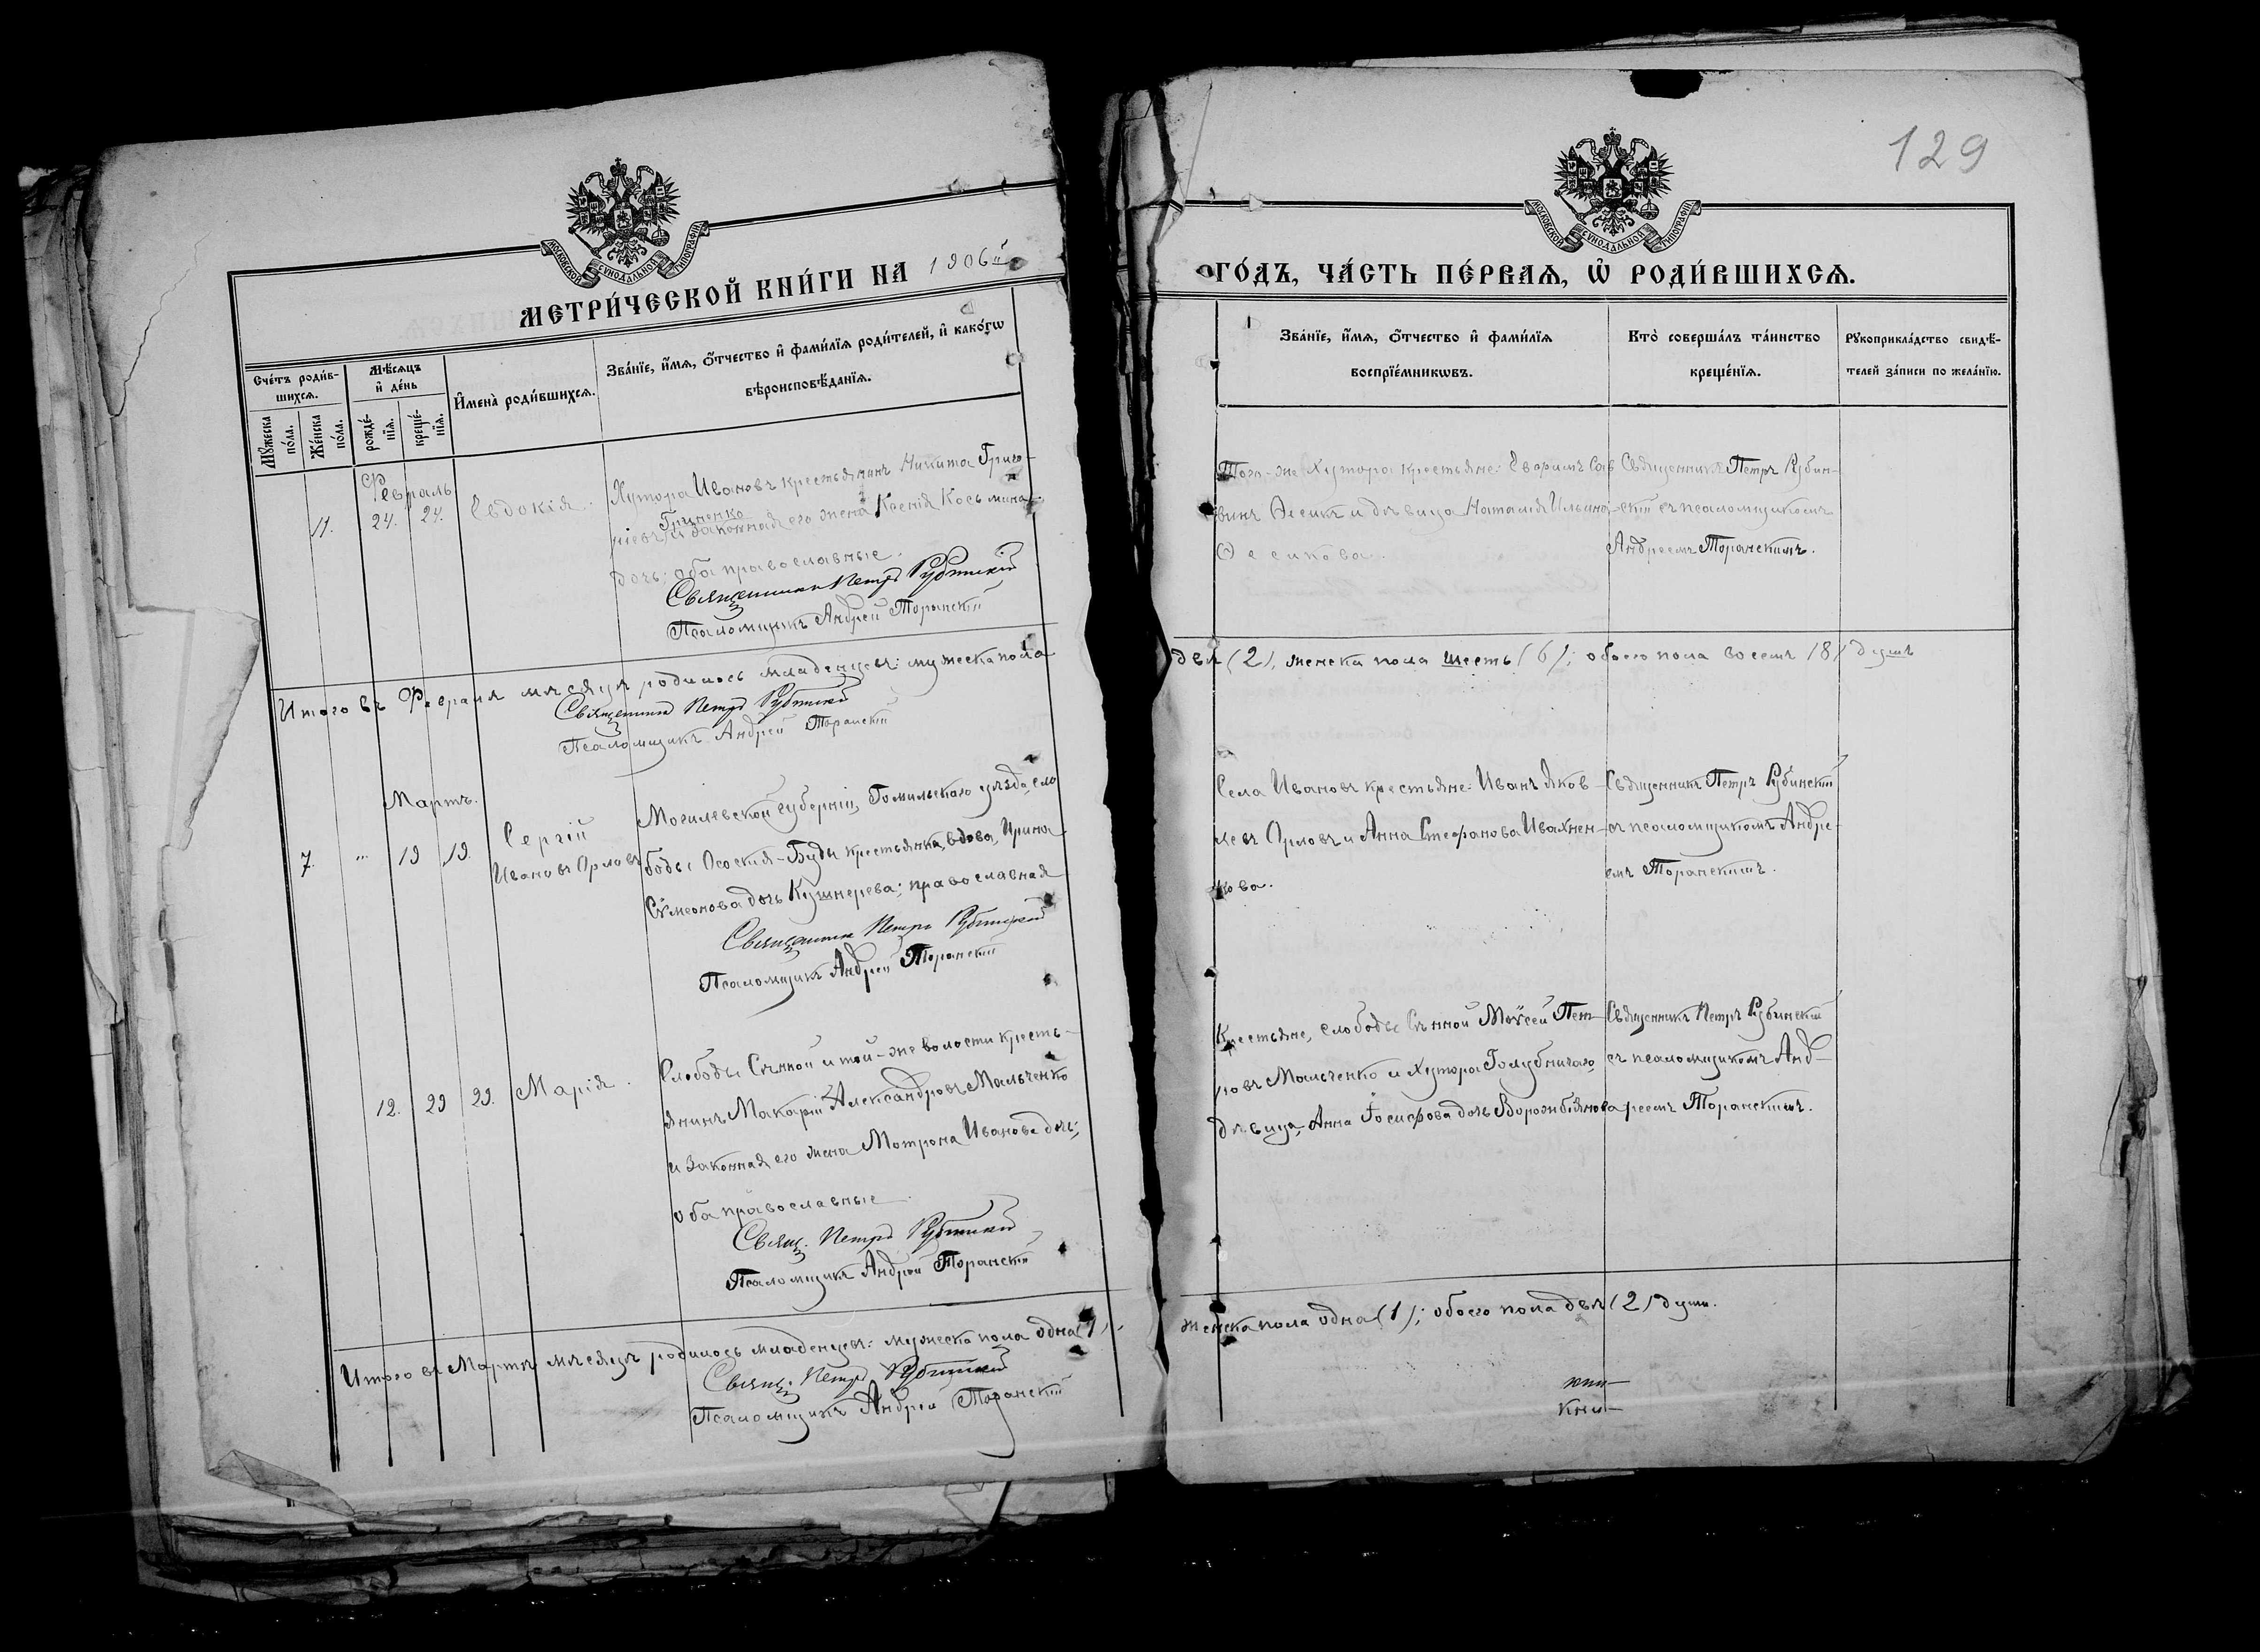 129
МОСКОВСКОЙ СУНОДАЛЬНОЙ ТИПОГРАФІИ
МЕТРИ́ЧЕСКОЙ КНИ́ГИ НА 1906й
Сче́тъ роди́в-
шихсѧ.
Мꙋ́жеска по́ла.
Же́нска по́ла.
Мѣ́сѧцъ и҆ де́нь
рожде́-
нїѧ.
креще́-
нїѧ.
И҆мена̀ роди́вшихсѧ.
Зва́нїе, и҆́мѧ, ѻ҆́тчество и҆ фами́лїѧ роди́телей, и҆ како́гѡ
вѣроисповѣ́данїѧ.
Февраль
11. 24. 24. Евдокія.
Хутора Ивановъ крестьянинъ Никита Григо-
Гриненко
ріевъ и законная его жена Ксенія Косьмина
дочь; оба православные.
Священникъ Петръ Рубинскій
Псаломщикъ Андрей Торанскій
Итого въ Февралѣ мѣсяцѣ родилось младенцевъ: мужеска пола
Священникъ Петръ Рубинскій
Псаломщикъ Андрей Торанскій
Мартъ.
7. " 19 19. Сергій
Ивановъ Орловъ
Могилевской губерніи, Гомильскаго уѣзда, сло
боды Буды крестьянка, вдова, Ирина
Сѵмеонова дочь Кушнерева; православная
Священникъ Петръ Рубинскій
Псаломщикъ Андрей Торанскій
12. 29 29. Марія.
Слободы Сѣнной и той-же волости кресть-
янинъ Макарій Александровъ Мальченко
и законная его жена Мотрона Иванова дочь;
оба православные.
Свящ. Петръ Рубинскій
Псаломщикъ Андрей Торанскій
Итого въ Мартѣ мѣсяцѣ родилось младенцевъ: мужеска пола одна (1).
Свящ. Петръ Рубинскій
Псаломщикъ Андрей Торанскій
МОСКОВСКОЙ СУНОДАЛЬНОЙ ТИПОГРАФІИ
ГО́ДЪ, ЧА́СТЬ ПЕ́РВАѦ, Ѡ҆ РОДИ́ВШИХСѦ.
Зва́нїе, и҆́мѧ, ѻ҆́тчество и҆ фами́лїѧ
воспрїе́мникѡвъ.
Кто̀ соверша́лъ та́инство
креще́нїѧ.
Рꙋкоприкла́дство свидѣ́-
телей за́писи по жела́нїю.
Того-же Хутора крестьяне: Евфимъ Сав
винъ Ѳесикъ и дѣвица Наталія Ильина
Ѳесикова.
Священникъ Петръ Рубин-
скій съ псаломщикомъ
Андреемъ Торанскимъ.
два (2), женска пола шесть (6); обоего пола восемь (8) душъ
Села Ивановъ крестьяне: Иванъ Яков-
левъ Орловъ и Анна Стефанова Ивахнен-
кова.
Священникъ Петръ Рубинскій
съ псаломщикомъ Андре-
емъ Торанскимъ.
Крестьяне, слободы Сѣнной Моѵсей Пет-
ровъ Мальченко и Хутора Голубничаго,
дѣвица, Анна Іосифова дочь Ворожбіянова
Священникъ Петръ Рубинскій
съ псаломщикомъ Анд-
реемъ Торанскимъ.
женска пола одна (1); обоего пола двѣ (2) души.
кни-